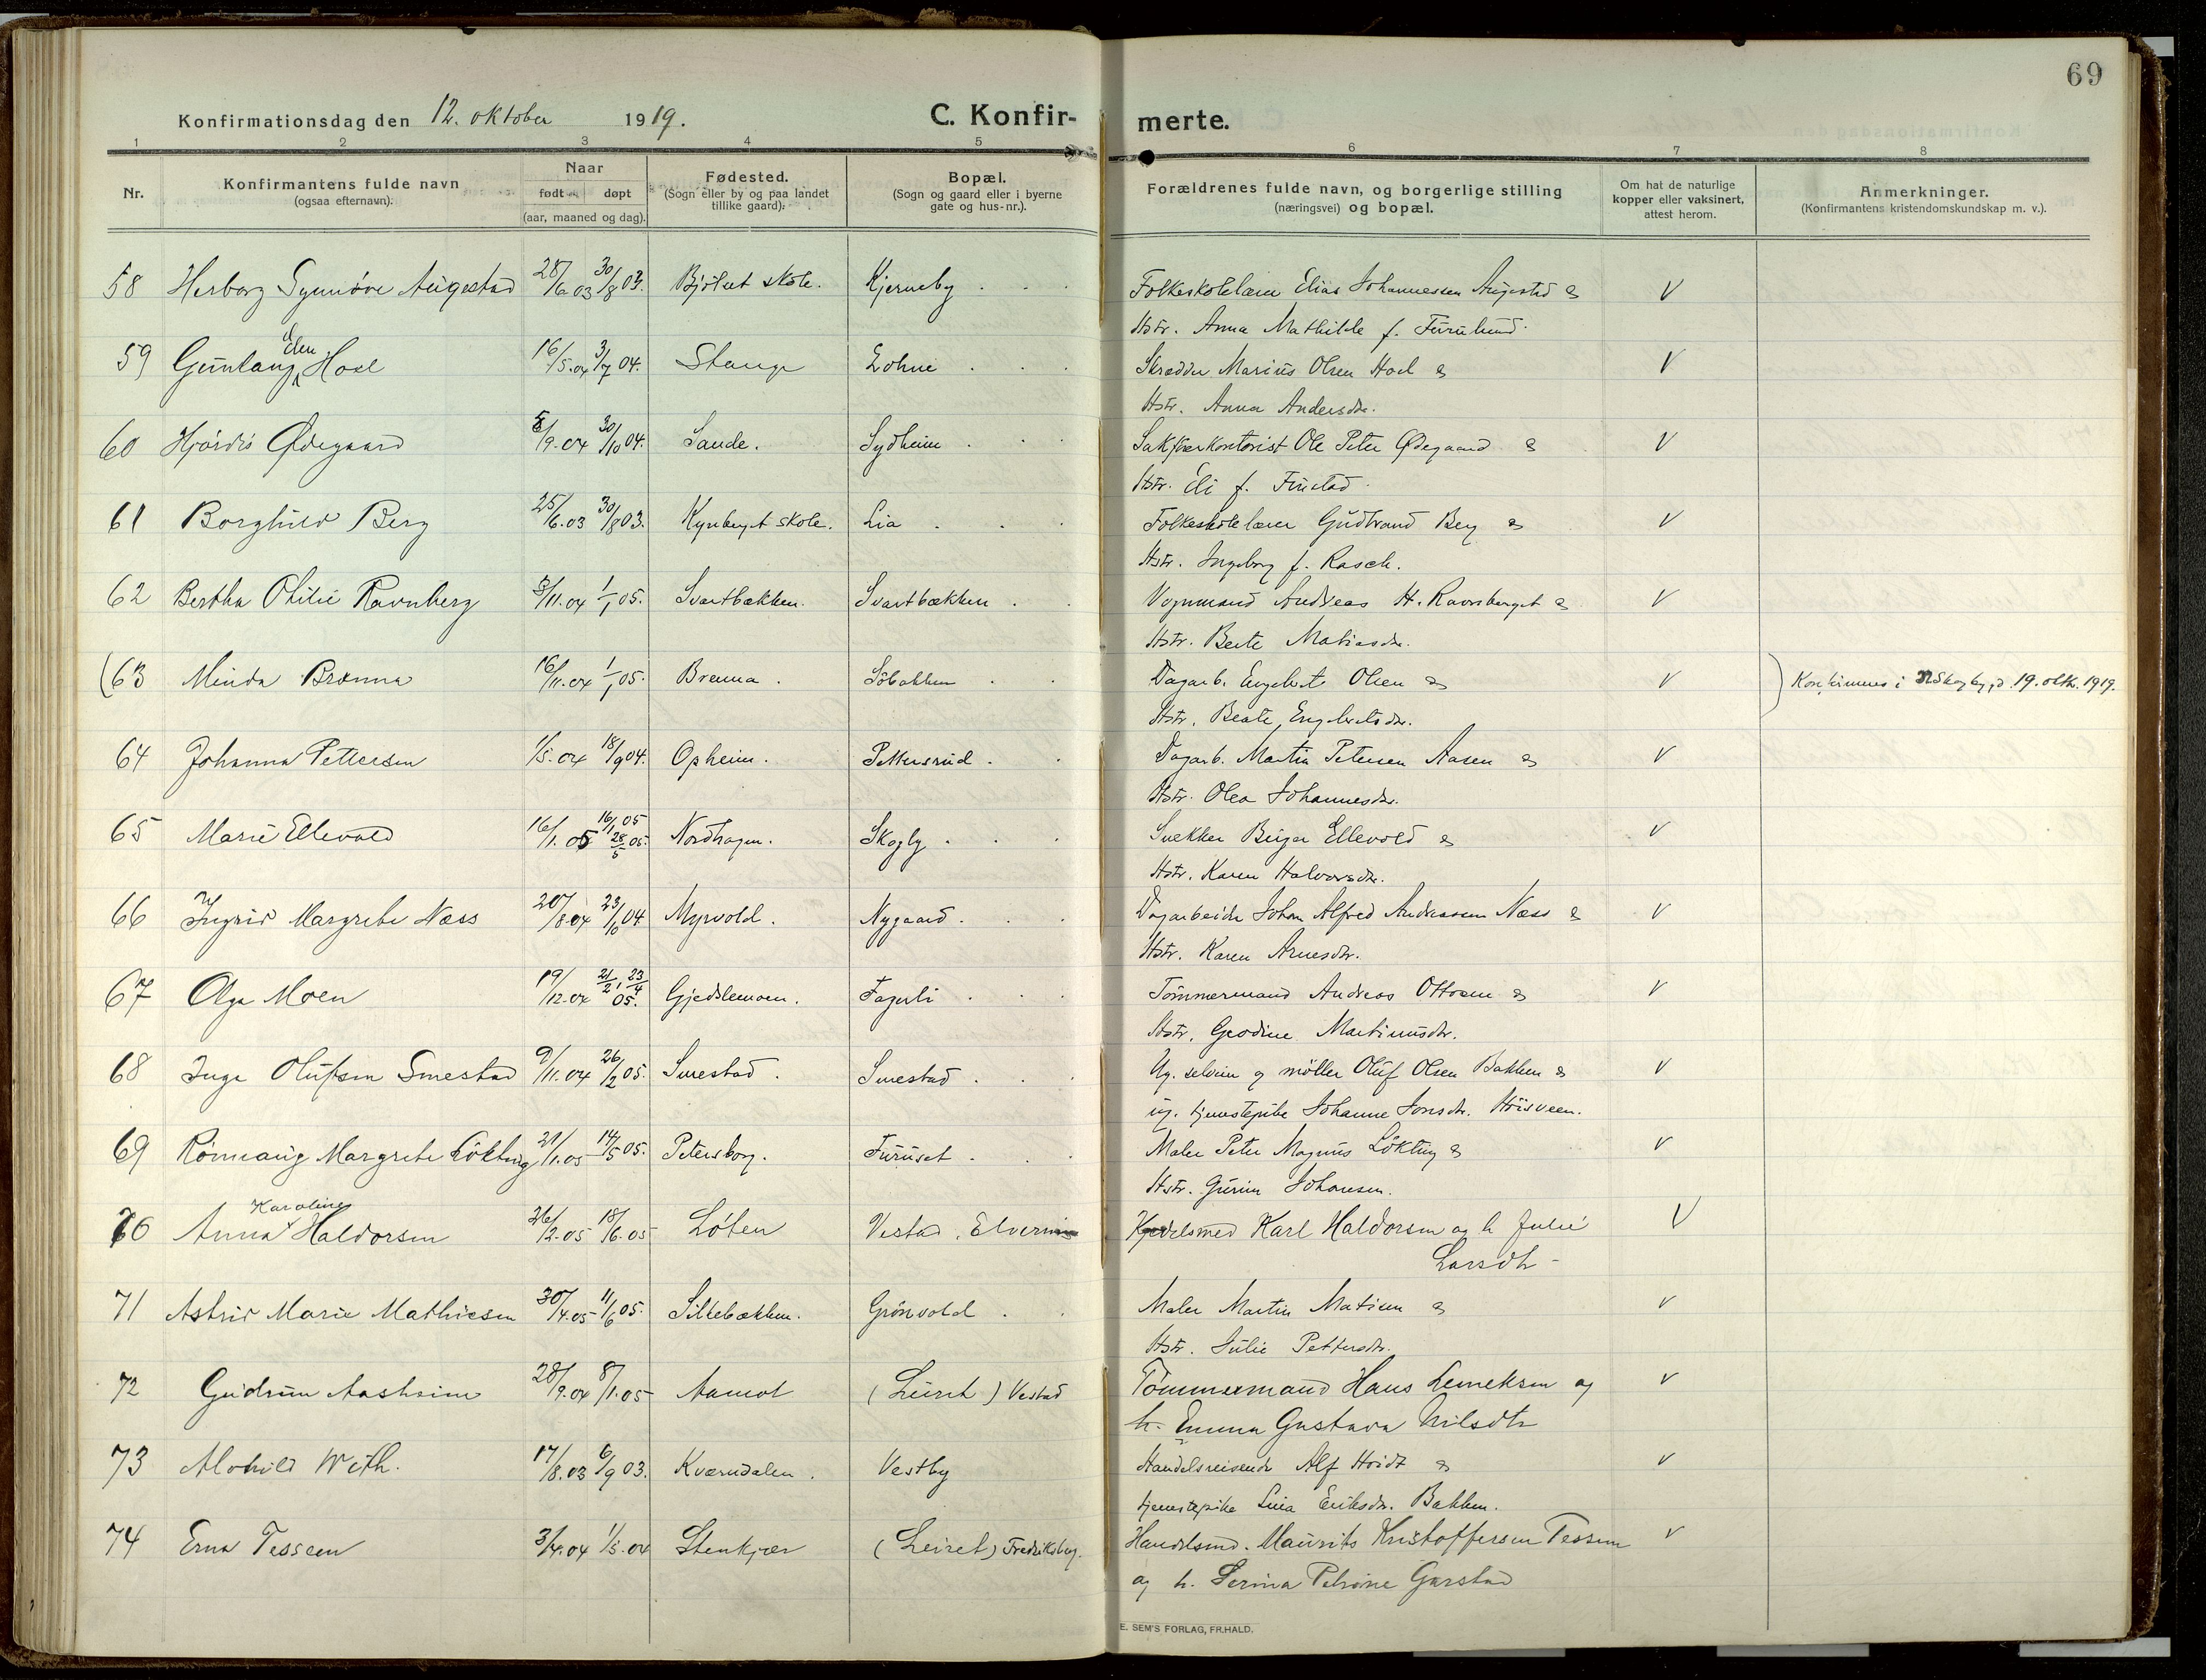 69
Konfirmationsdag den 12. oktober 1919. C. Konfirmerte.
1 2 3 4 5 6 7 8
Nr. Konfirmantens fulde navn (ogsaa efternavn). Naar født døpt (aar, maaned og dag). Fødested. (Sogn eller by og paa landet tillike gaard). Bopæl. (Sogn og gaard eller i byerne gate og hus-nr.). Forældrenes fulde navn, og borgerlige stilling (næringsvei) og bopæl. Om hat de naturlige kopper eller vaksinert, attest herom. Anmerkninger. (Konfirmantens kristendomskundskap m. v.).
58 Herborg Synnöve Augestad 28/6 03 30/8 03. Bjölset skole. Kjerneby Folkeskolelærer Elias Johannessen Augestad & V
Hstr. Anna Mathilde f. Furulund.
59 Gunlaug Elen Hoel 16/5.04 3/7 04. Stange Lohne Skrædder Marius Olsen Hoel & V
Hstr. Anna Andersdtr.
60 Hjördis Ødegaard 5/9-04 30/10 04. Sande. Sydheim Sakförerkontorist Ole Peter Ødegaard & V
Hstr. Eli f. Finstad.
61 Borghild Berg 25/6.03 30/8 03. Kynberget skole. Lia Folkeskolelærer Gudbrand Berg & V
Hstr. Ingeborg f. Rasch.
62 Bertha Otilie Ravnberg 3/11.04 1/1 05. Svartbækken. Svartbækken Vognmand Andreas H. Ravnsberget & V
Hstr. Berte Matiasdtr.
(63 Minda Brænna 16/11.04 1/1 05. Brenna. Söbakken Dagarb. Engebret Olsen & V ) Konfirmeres i N. Skogbygd 19. oktb. 1919.
Hstr. Beate Engebretsdtr.
64 Johanna Pettersen 1/5.04 18/9 04. Opheim. Pettersrud Dagarb. Martin Petersen Aasen & V
Hstr. Olea Johannesdtr.
65 Marie Ellevold 16/1.05 16/1 05 28/5 05. Nordhagen. Skogly Snekker Birger Ellevold & V
Hstr. Karen Halvorsdtr.
66 Ingrid Margrethe Næss 20/8 04 23/10 04 Myrvold. Nygaard. Dagarbeider Johan Alfred Andreassen Næss & V
Hstr. Karen Arnesdtr.
67 Olga Moen 19/12.04 21/2, 23/4 05. Gjedslemoen. Fagerli Tömmermand Andreas Ottosen & V
Hstr. Geodine Martinusdtr.
68 Inga Olufsen Smestad 9/11.04 26/2 05. Smestad. Smestad Ug. selveier og möller Oluf Olsen Bakken & V
ug. tjenestepike Johanne Jonsdtr. Hörsveen.
69 Rönnaug Margrete Löktug 21/1.05 14/5 05. Petersborg. Furuset Maler Peter Magnus Löktug & V
Hstr. Gurine Johansen.
70 Anna Karoline Haldorsen 26/2.05 18/6.05 Löten Vestad, Elverum Kjedelsmed Karl Haldorsen og h. Julie V
Larsdtr
71 Astrid Marie Mathiesen 30/4.05 11/6 05. Sillebækken. Grönvold Maler Martin Matisen & V
Hstr. Julie Pettersdtr.
72 Gudrun Aasheim 28/9.04 8/1.05 Aamot (Leiret) Vestad Tömmermand Hans Lemeksen og V
h. Emma Gustava Nilsdtr
73 Alvhild With. 17/8.03 6/9 03. Kværndalen. Vestby Handelsreisende Alf Hvidt & V
tjenestepike Lina Eriksdtr. Bakken.
74 Erna Tessem 3/4.04 1/5.04 Stenkjær (Leiret) Fredriksberg. Handelsmd. Maurits Kristoffersen Tessem V
og h. Serina Petrine Garstad
E. SEM'S FORLAG, FR.HALD.